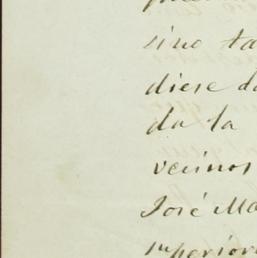 sino ta
diese da
da la
vecinos
José Ma
superior